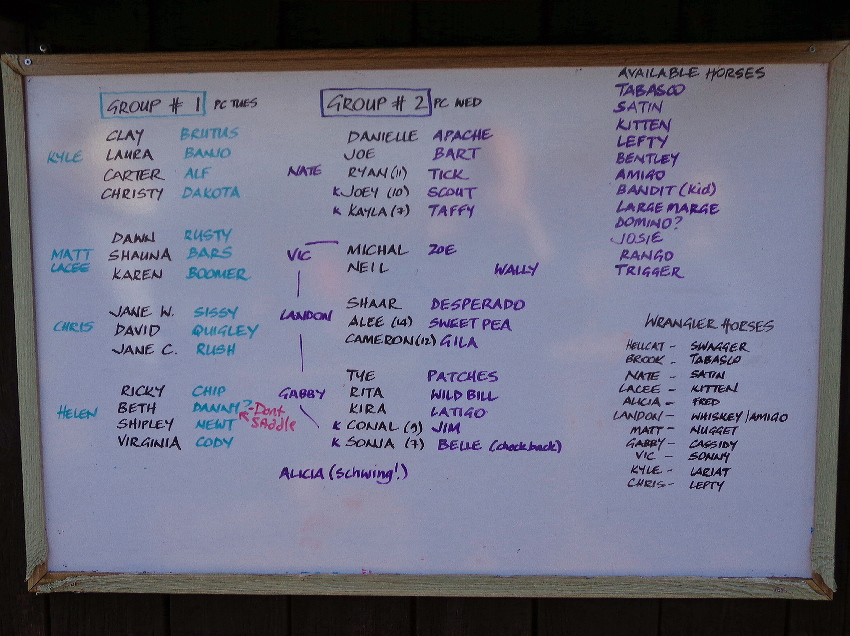 GROUP # 1 PC TUES
KYLE
CLAY BRUTUS
LAURA BANJO
CARTER ALF
CHRISTY DAKOTA
MATT
LACEE
DAWN RUSTY
SHAUNA BARS
KAREN BOOMER
CHRIS
JANE W. SISSY
DAVID QUIGLEY
JANE C. RUSH
HELEN
RICKY CHIP
BETH DANNY? - Dont
SHIPLEY NEWT Saddle
VIRGINIA CODY
GROUP # 2 PC WED
NATE
DANIELLE APACHE
JOE BART
RYAN (11) TICK
K JOEY (10) SCOUT
K KAYLA (7) TAFFY
VIC
MICHAL ZOE
NEIL WALLY
LANDON
SHAAR DESPERADO
ALEE (14) SWEET PEA
CAMERON (12) GILA
GABBY
TYE PATCHES
RITA WILD BILL
KIRA LATIGO
K CONAL (9) JIM
K SONJA (7) BELLE (check back)
ALICIA (Schwing!)
AVAILABLE HORSES
TABASCO
SATIN
KITTEN
LEFTY
BENTLEY
AMIGO
BANDIT (kid)
LARGE MARGE
DOMINO?
JOSIE
RANGO
TRIGGER
WRANGLER HORSES
HELLCAT - SWAGGER
BROOK - TABASCO
NATE - SATIN
LACEE - KITTEN
ALICIA - FRED
LANDON - WHISKEY / AMIGO
MATT - NUGGET
GABBY - CASSIDY
VIC - SONNY
KYLE - LARIAT
CHRIS - LEFTY